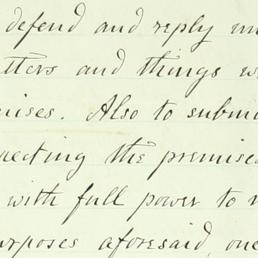 defend and reply un
tters and things w
ises. Also to submi
ecting the premise
with full power to
urposes aforesaid, one